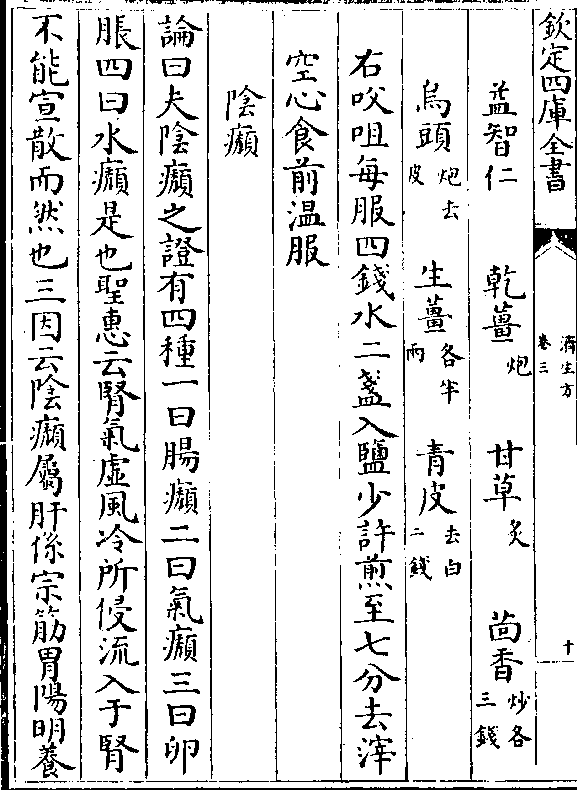 欽定四庫全書
濟生方
卷三
十
益智仁 乾薑炮 甘草炙 茴香炒各三錢
烏頭炮去皮 生薑各半兩 青皮去白二錢
右㕮咀每服四錢水二盞入鹽少許煎至七分去滓
空心食前温服
陰㿗
論曰夫陰㿗之證有四種一曰腸㿗二曰氣㿗三曰卵
脹四曰水㿗是也聖惠云腎氣虛風冷所侵流入于腎
不能宣散而然也三因云陰㿗屬肝係宗筋胃陽明養